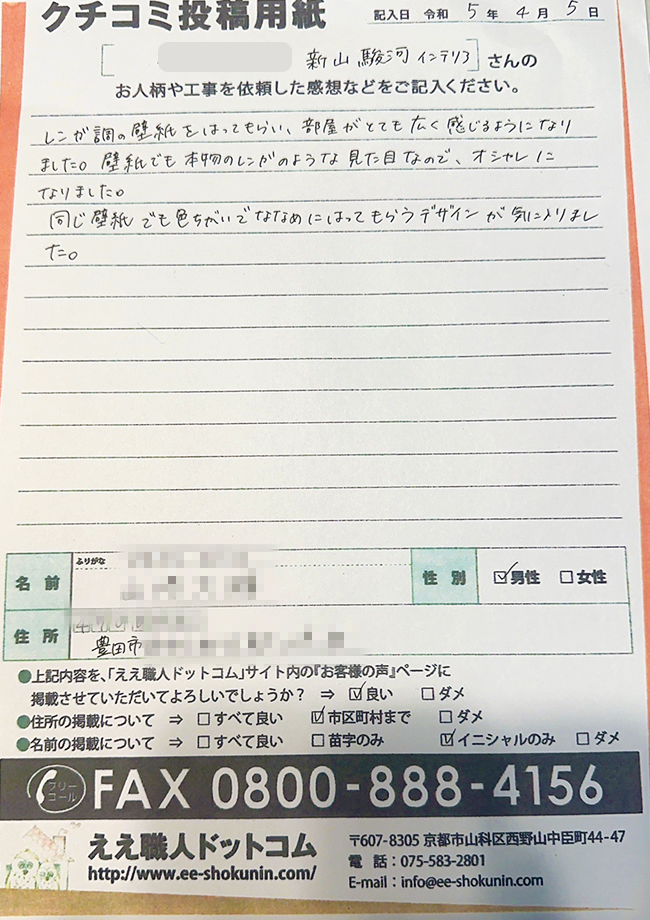 クチコミ投稿用紙
記入日 令和 5 年 4 月 5 日
[ 新山 駿河 インテリア ] さんの
お人柄や工事を依頼した感想などをご記入ください。
レンガ調の壁紙をはってもらい、部屋がとても広く感じるようになり
ました。壁紙でも本物のレンガのような見た目なので、オシャレに
なりました。
同じ壁紙でも色ちがいでななめにはってもらうデザインが気に入りまし
た。
ふりがな
名前
性別 ☑男性 □女性
住所 豊田市
●上記内容を、「ええ職人ドットコム」サイト内の『お客様の声』ページに
掲載させていただいてよろしいでしょうか? ⇒ ☑良い □ダメ
●住所の掲載について ⇒ □すべて良い ☑市区町村まで □ダメ
●名前の掲載について ⇒ □すべて良い □苗字のみ ☑イニシャルのみ □ダメ
フリーコール FAX 0800-888-4156
ええ職人ドットコム
http://www.ee-shokunin.com/
〒607-8305 京都市山科区西野山中臣町44-47
電 話:075-583-2801
E-mail:info@ee-shokunin.com